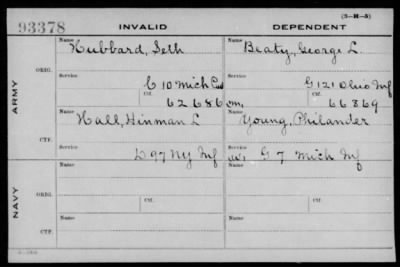 (3-H-5)
93378 INVALID DEPENDENT
Name Name
Hubbard, Seth Beaty, George L
ORIG.
Service Service
C 10 Mich Cav G 121 Ohio Inf
Ctf. Ctf.
62686 m, 66869
ARMY
Name Name
Hall, Hinman L Young, Philander
CTF.
Service
D 97 NY Inf G 7 Mich Inf
Name Name
ORIG.
Ctf. Ctf.
NAVY
Name Name
CTF.